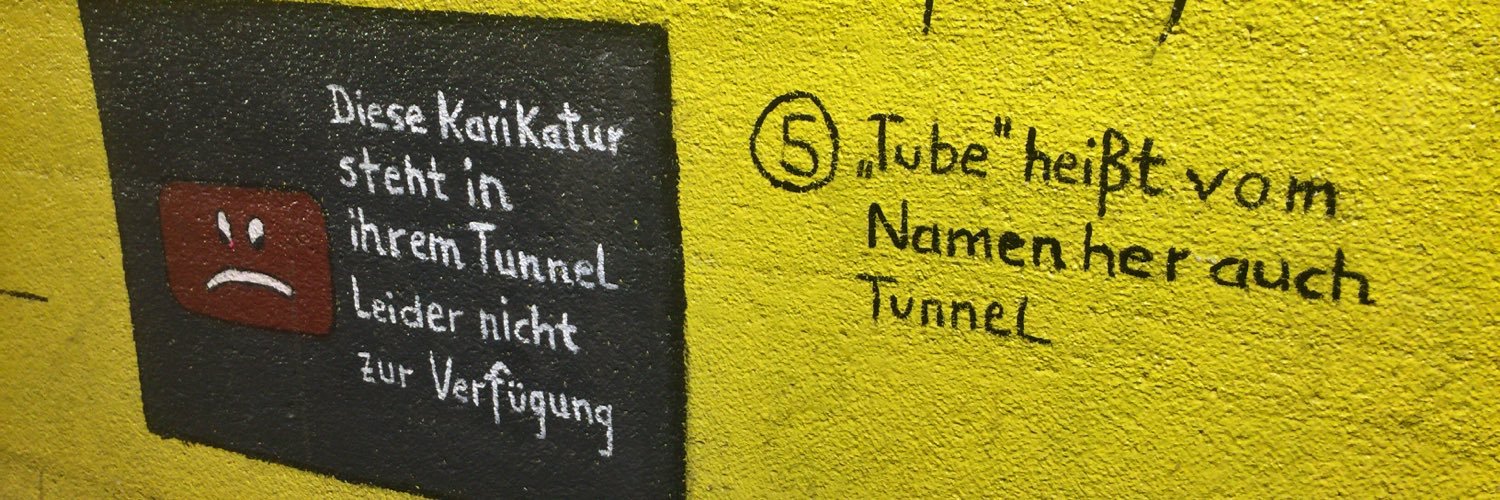 Diese Karikatur
steht in
ihrem Tunnel
Leider nicht
zur Verfügung
⑤ „Tube" heißt vom
Namen her auch
Tunnel